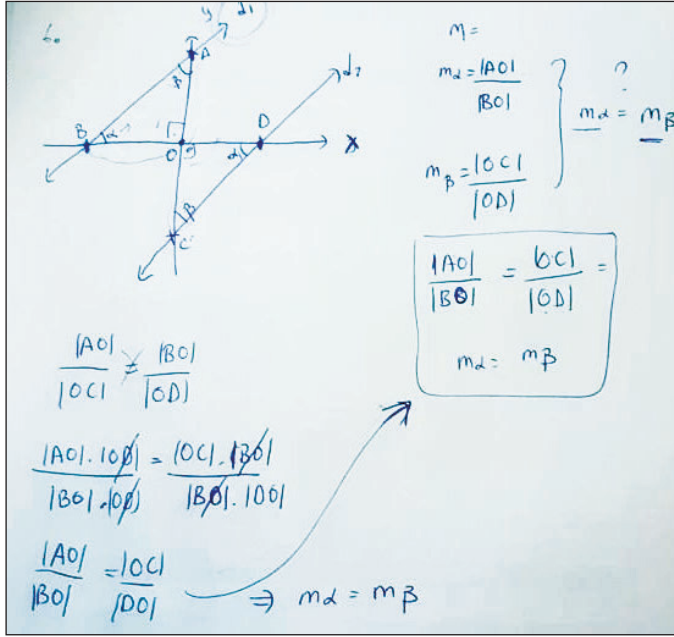 6.
y d₁
A
β
d₂
B α D
O α x
β
C
m =
mα = |AO| / |BO|
?
mα = mβ
mβ = |OC| / |OD|
|AO| / |BO| = |OC| / |OD| =
mα = mβ
|AO| / |OC| = |BO| / |OD|
|AO|.|OD| / |BO|.|OD| = |OC|.|BO| / |BO|.|DO|
|AO| / |BO| = |OC| / |DO| ⇒ mα = mβ